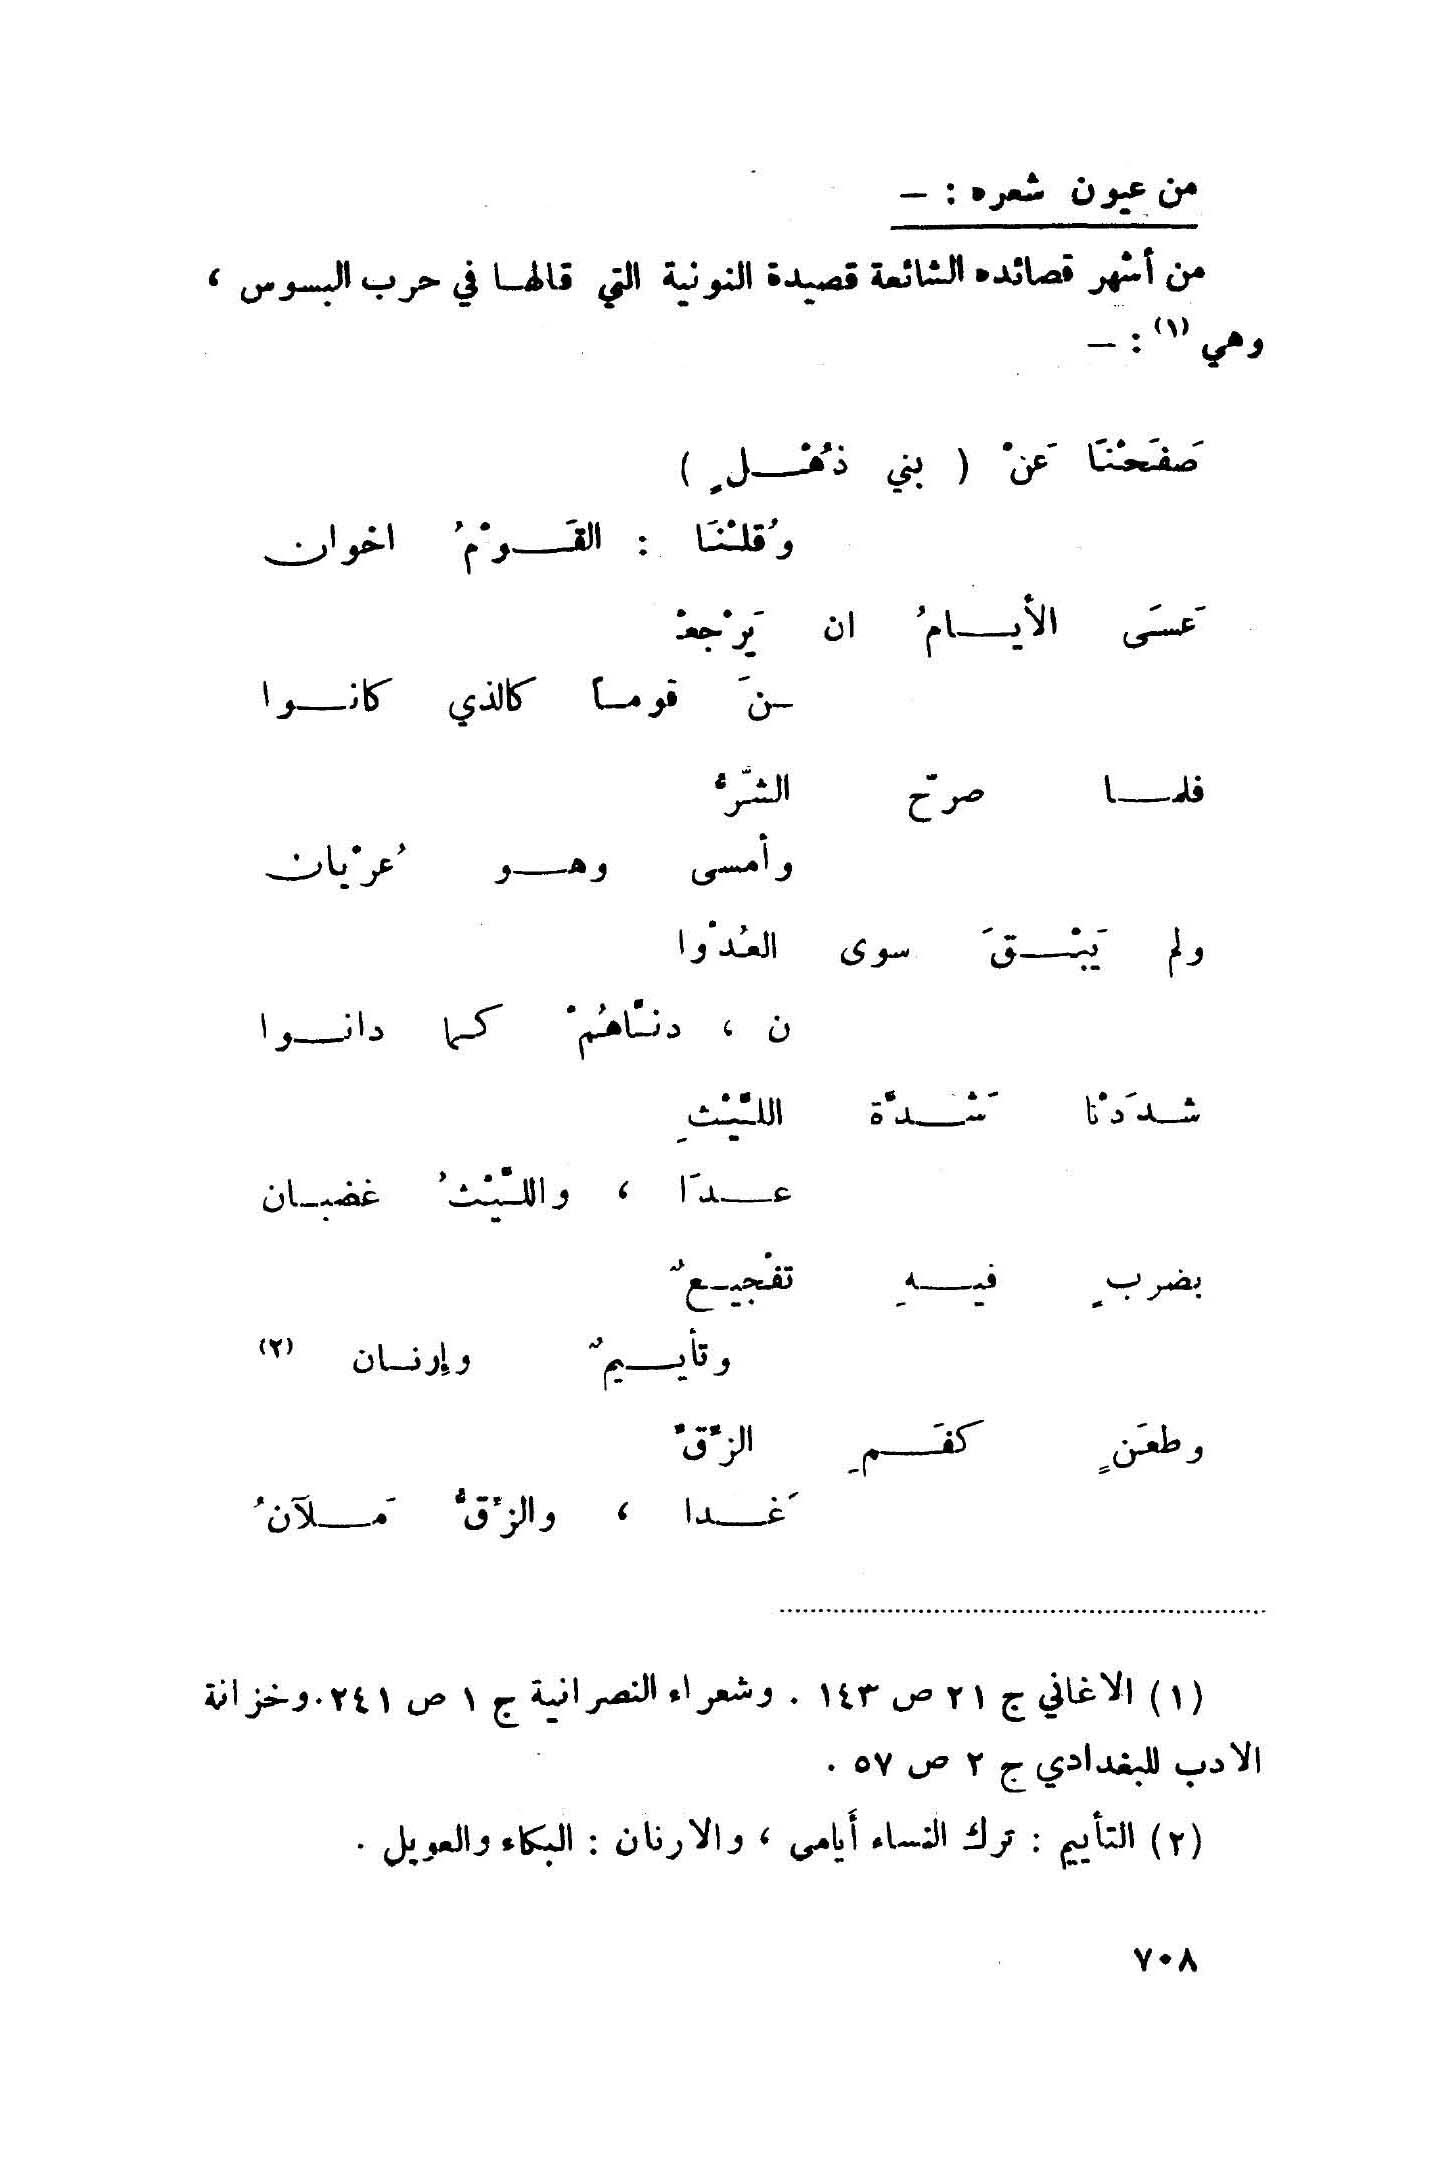 من عيون شعره : –
من أشهر قصائده الشائعة قصيدة النونية التي قالها في حرب البسوس ،
وهي (١) : –
صَفَحْنَا عَنْ ( بني ذُهْلٍ )
وقُلْنَا : القَوْمُ اخوان
عَسَى الأيامُ ان يَرْجعْـ
ـنَ قوماً كالذي كانوا
فلما صرّح الشّرُّ
وأمسى وهو عُرْيان
ولم يَبْقَ سوى العُدْوا
ن ، دنّاهُمْ كما دانوا
شددَنْا شَدَّة اللّيْثِ
عدَا ، واللّيْثُ غضبان
بضربٍ فيهِ تفْجيعٌ
وتأييمٌ وإرنان (٢)
وطعَنٍ كفَمِ الزِّقّ
غَدا ، والزِّقُّ مَلآنُ
(١) الاغاني ج ٢١ ص ١٤٣ . وشعراء النصرانية ج ١ ص ٢٤١. وخزانة
الادب للبغدادي ج ٢ ص ٥٧ .
(٢) التأييم : ترك النساء أَيامى ، والارنان : البكاء والعويل .
٧٠٨